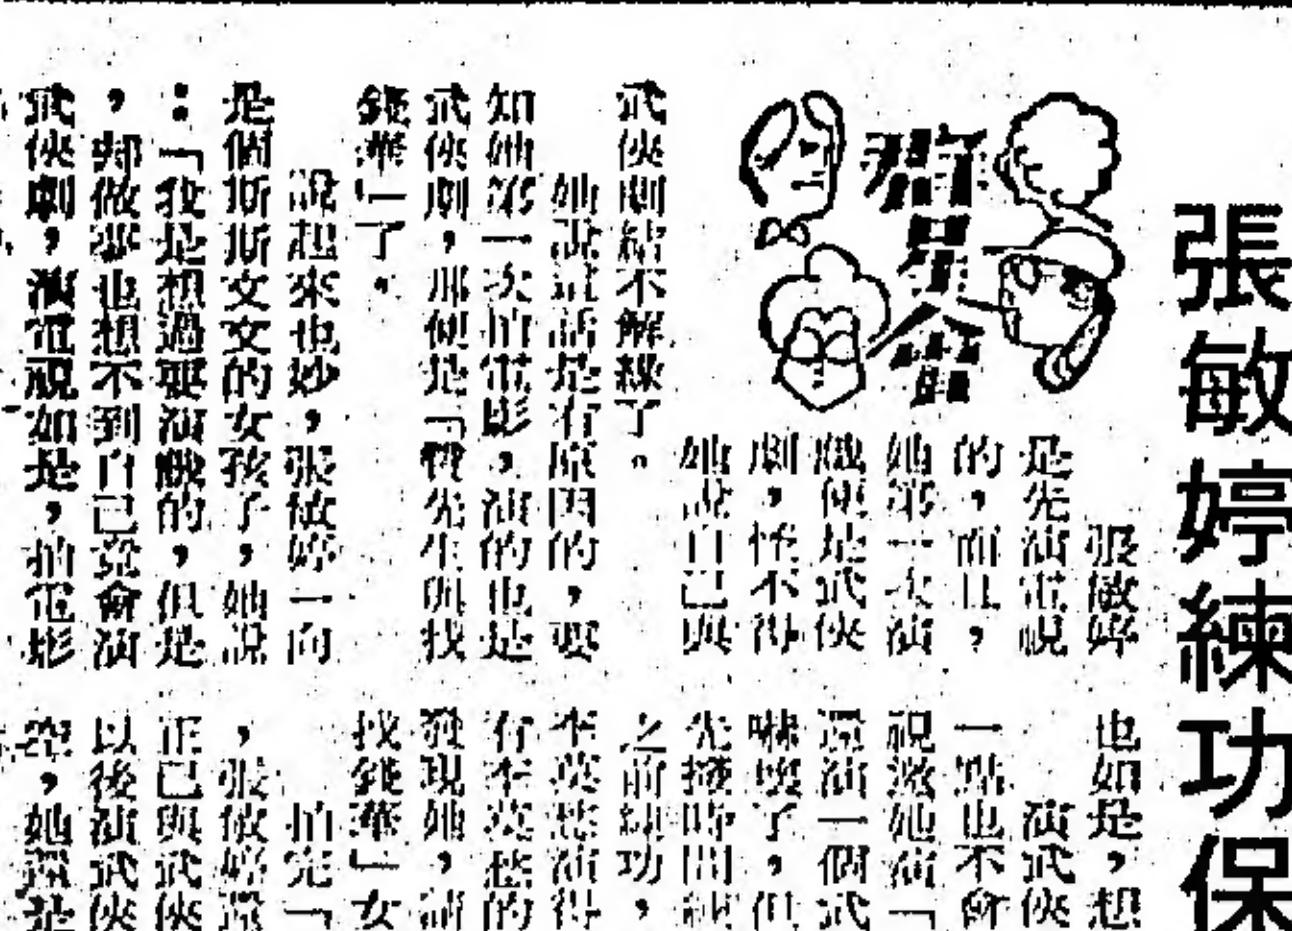 張敏婷練功保
群星會
張敏婷
是先演電視
的，而且，
她第一次演
戲便是武俠
劇，怪不得
她說自己與
武俠劇結不解緣了。
她說這話是有原因的，要
知她第一次拍電影，演的也是
武俠劇，那便是「賣先生與找
錢華」了。
說起來也妙，張敏婷一向
是個斯斯文文的女孩子，她說
：「我是想過要演戲的，但是
，卻做夢也想不到自己竟會演
武俠劇，演電視如是，拍電影
也如是，想
演武俠
一點也不會
視邀她演「
還演一個武
嚇壞了，但
先撥時間練
之前練功，
李英愁演得
有李英愁的
發現她，請
找錢華」女
拍完「
，張敏婷還
正已與武俠
以後演武俠
空，她還是